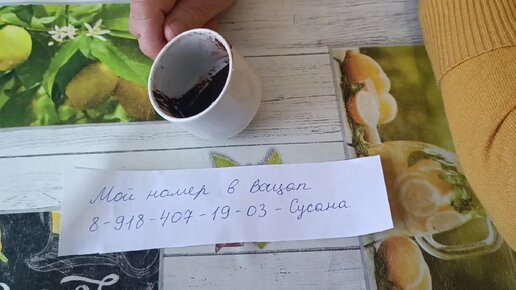 Мой номер в вацап
8-918-407-19-03-Сусана